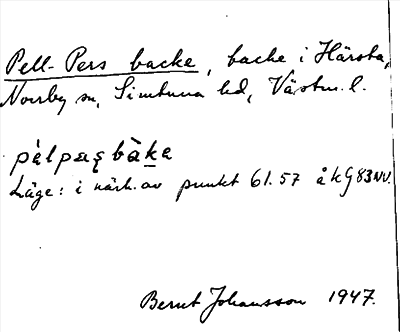 Pell-Pers backe, backe i Härsta,
Norrby sn, Simtuna hd, Västm. l.
pèlpæʂbàke
Läge: i närh. av punkt 61.57 å kG 83NV.
Bernt Johansson 1947.